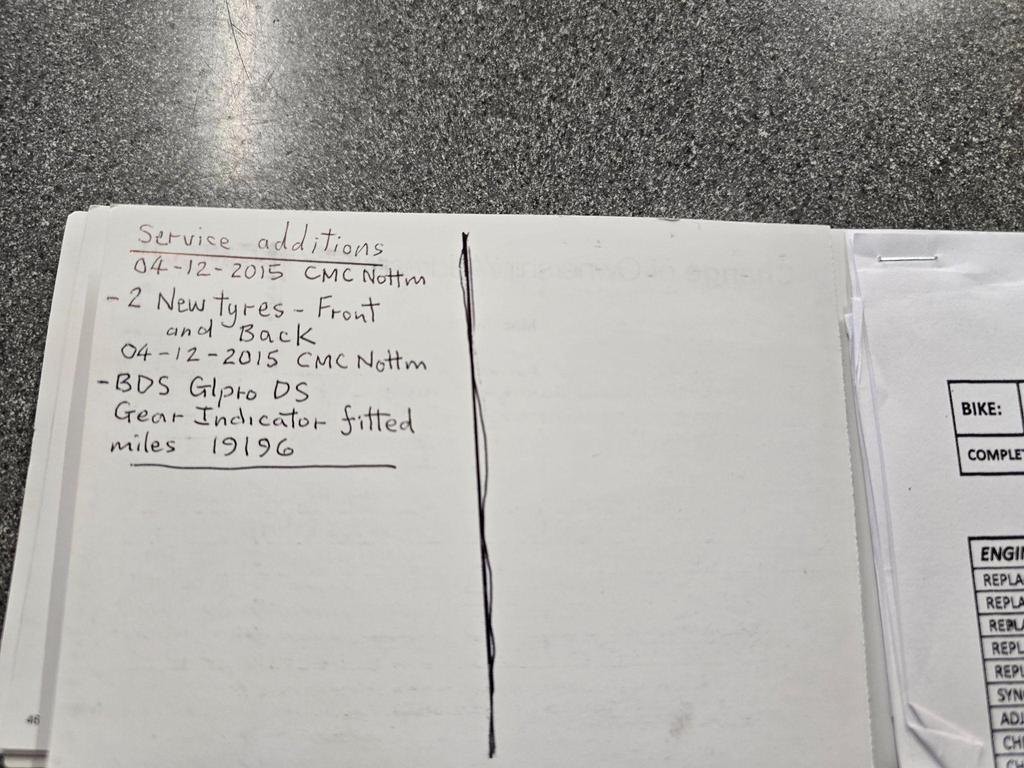 Service additions
04-12-2015 CMC Nottm
- 2 New tyres - Front
and Back
04-12-2015 CMC Nottm
- BDS GIpro DS
Gear Indicator fitted
miles 19196
46
BIKE:
COMPLET
ENGIN
REPLA
REPLA
REPLA
REPL
REPL
SYN
ADJ
CHE
CH